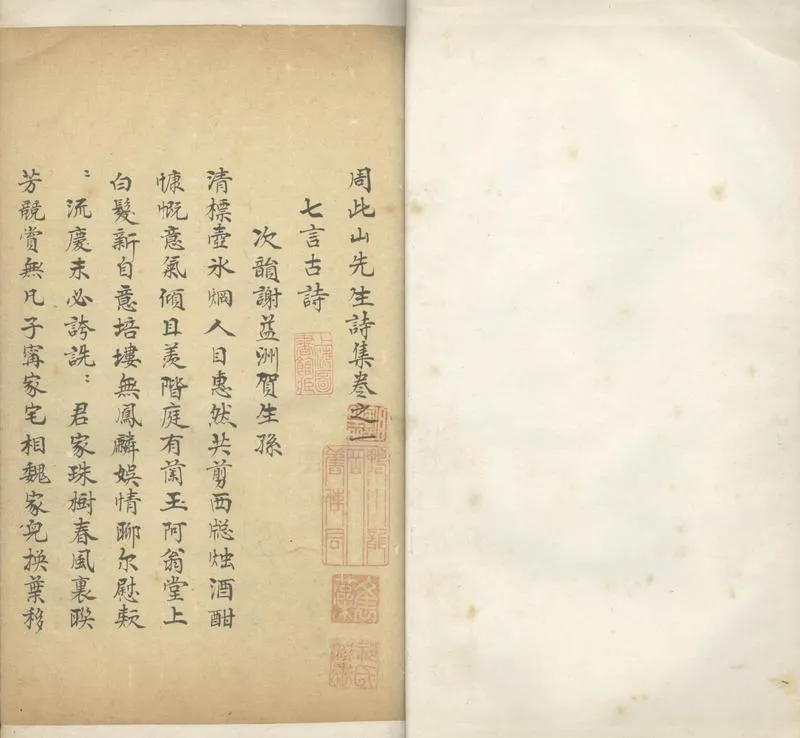 周此山先生詩集卷之一
七言古詩
次韻謝益洲賀生孫
清標壺氷烱人目惠然共剪西窓燭酒酣
慷慨意氣傾且羡階庭有蘭玉阿翁堂上
白髮新自意培塿無鳳麟娛情聊尔慰欵
：流慶未必誇詵：君家珠樹春風裏聫
芳競賞無凡子寗家宅相魏家兒換葉移